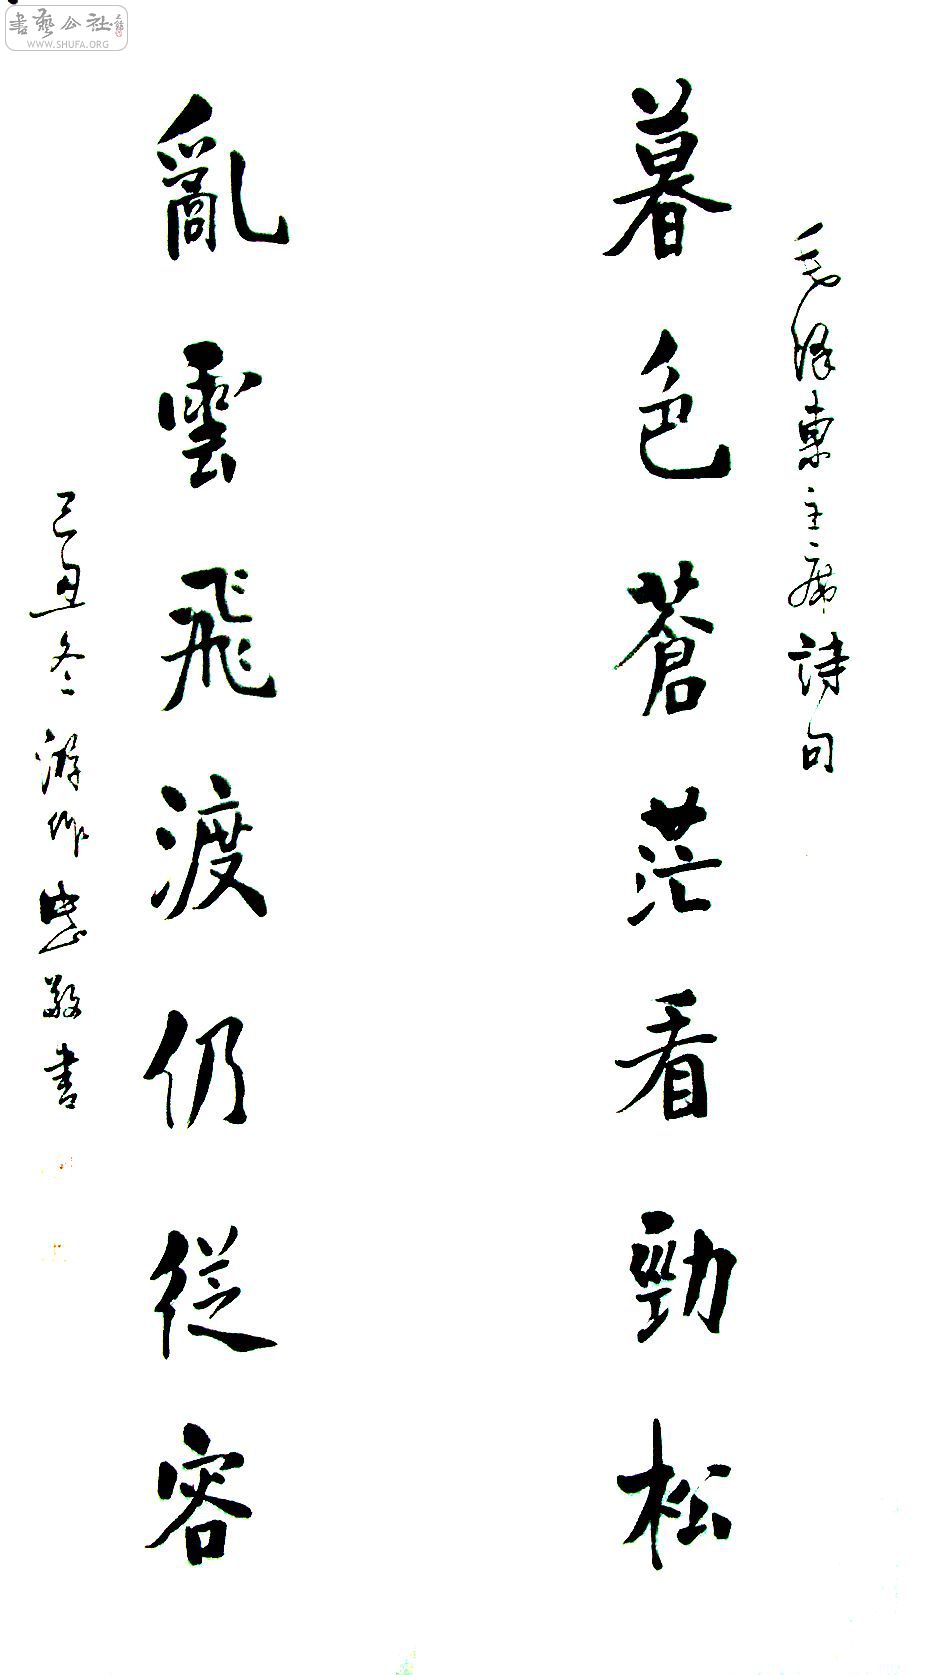 書藝公社
WWW.SHUFA.ORG
毛澤東主席詩句
暮色蒼茫看勁松
亂雲飛渡仍從容
己丑冬游作忠敬書